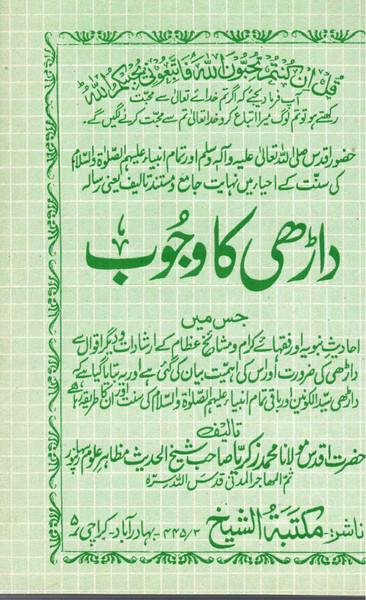 قُلْ اِنْ كُنْتُمْ تُحِبُّوْنَ اللّٰهَ فَاتَّبِعُوْنِيْ يُحْبِبْكُمُ اللّٰهُ
آپ فرما دیجئے کہ اگر تم خدائے تعالیٰ سے محبت
رکھتے ہو تو تم لوگ میرا اتباع کرو خدا تعالیٰ تم سے محبت کرنے لگیں گے۔
حضور اقدس صلی اللہ تعالیٰ علیہ وآلہ وسلم اور تمام انبیاء علیہم الصلوٰۃ والسلام
کی سنّت کے احیاء میں نہایت جامع و مستند تالیف یعنی رسالہ
داڑھی کا وجوب
جس میں
احادیث نبویہ اور فقہائے کرام و مشائخ عظام کے ارشادات و دیگر اقوال سے
داڑھی کی ضرورت اور اس کی اہمیت بیان کی گئی ہے اور یہ بتایا گیا ہے کہ
داڑھی سیّد الکونین اور باقی تمام انبیاء علیہم الصلوٰۃ والسلام کی سنت اور ان کا طریقہ ہے
تالیف
حضرت اقدس مولانا محمد زکریا صاحب شیخ الحدیث مظاہر علوم سہارنپور
ثم المہاجر المدنی قدس اللہ سرہٗ
ناشر:۔ مکتبۃ الشیخ ۴۴۵/۳ - بہادر آباد - کراچی ۵